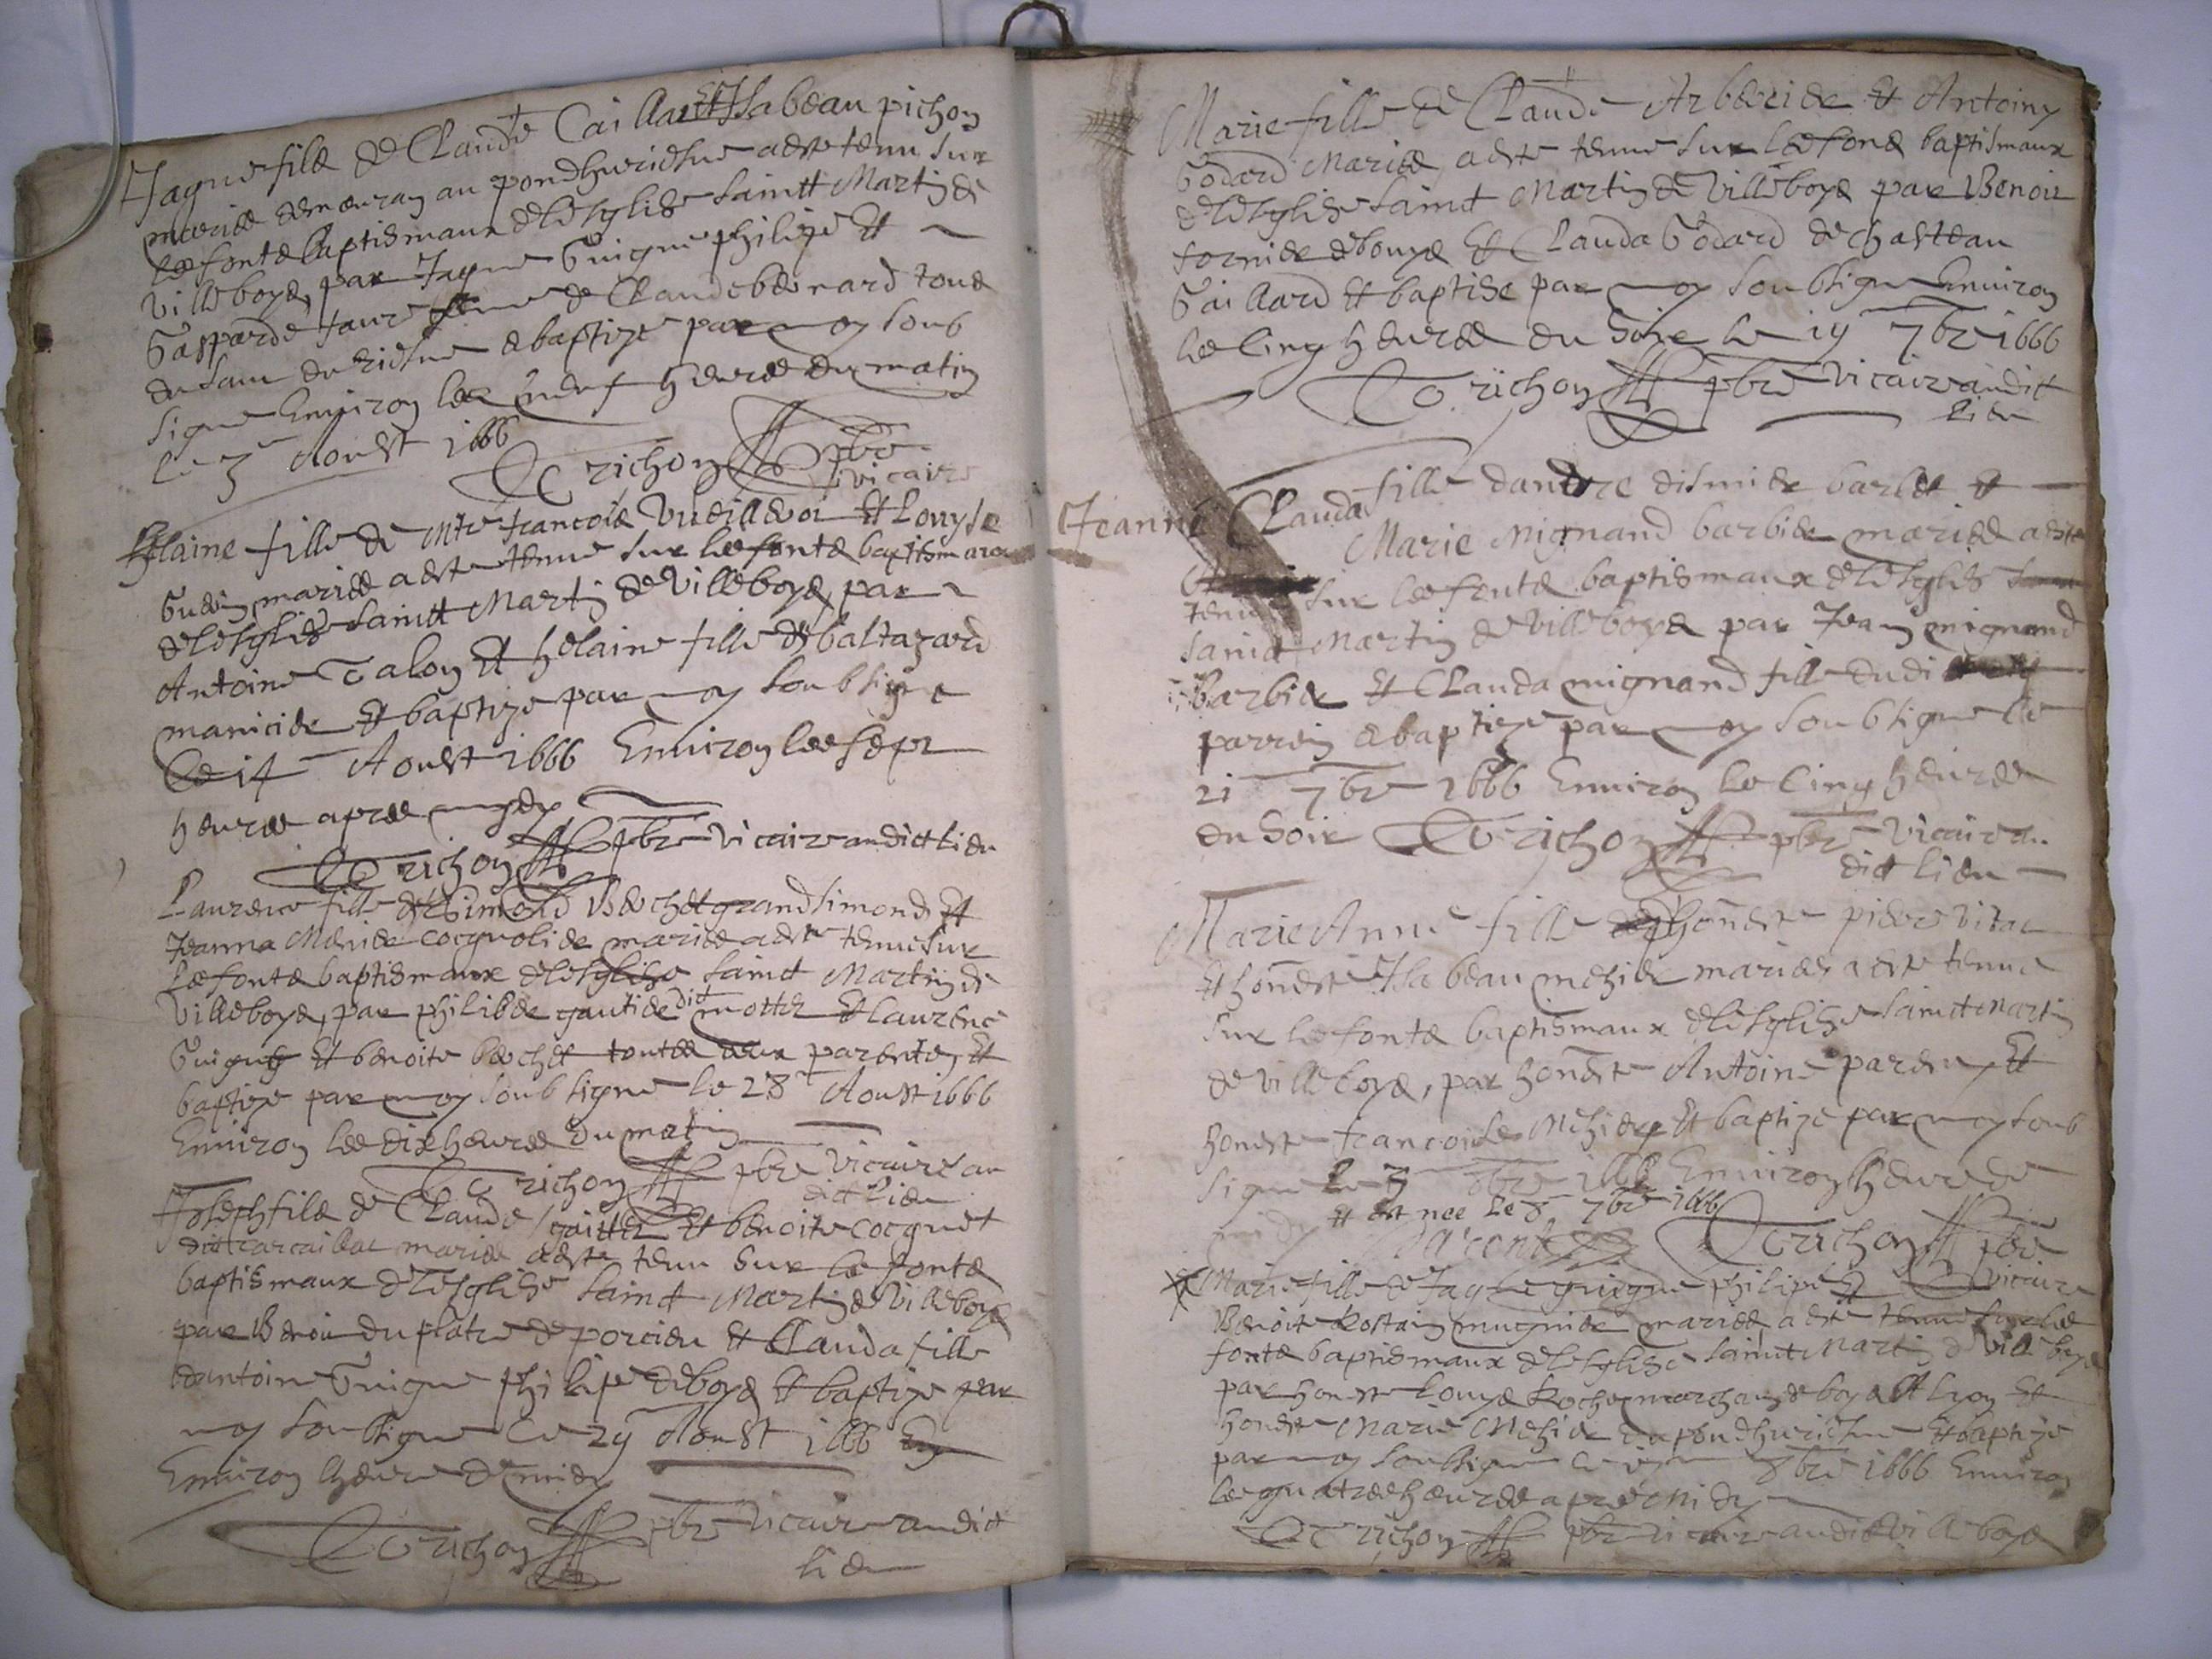 Jaques filz de Claude Caillat Et Isabeau pichon
mariés demeuran au pondhuerieme a este tenu sur
les fontz baptismaux de lesglise sainct Martin de
Villeboys, par Jaques Guigue philipe Et
Gasparde faure femme de Claude bernard tous
du baptize par moy soub
signe Environ les neuf heures du matin
le 3 Aoust 1666
richon pbre
vicaire
Helaine fille de Mtre francois Et Louyse
mariés a este tenue sur les fontz baptismaux
de lesglise sainct Martin de Villeboys, par
Antoine Talon Et helaine fille de baltazard
manicier Et baptize par moy soubsigne
Le 14 Aoust 1666 Environ les sept
heures apres midy
richon pbre vicaire audict lieu
Laurence fille de Simond Bechet grand simond Et
Jeanna Menier cocquolier mariés a este tenue sur
les fontz baptismaux de lesglise sainct Martin de
Villeboys, par philibe gautier dict mottez Et laurence
Guigue Et benoite bechet toutes deux parentes, Et
baptize par moy soubsigne le 28 Aoust 1666
Environ les dix heures du matin
richon pbre vicaire au
dict lieu
Joseph filz de Claude gaittez Et benoite cocquet
dict carcaillat mariés a este tenu sur les fontz
baptismaux de lesglise sainct Martin de Villeboys
par Benoit duplatre de porcieu Et Clauda fille
dantoine Guigue philipe de boys Et baptize par
moy soubsigne Ce 29 Aoust 1666
Environ lheure de midy
richon pbre vicaire audict
lieu
Marie fille de Claude Arberier Et Antoiny
Godard Mariés, a este tenue sur les fons baptismaux
de lesglise sainct Martin de Villeboys par Benoit
fornier de bouys Et Clauda Godard de chasteau
Gaillard Et baptise par moy soubsigne Environ
les cinq heures du soir le 19 7bre 1666
richon pbre vicaire audict
lieu
Jeanne Clauda fille dandre dismier barlet Et
Marie Mignand barbier mariés a este
tenue sur les fontz baptismaux de lesglise
sainct Martin de Villeboys par Jean mignand
Barbier Et Clauda mignand fille dudi
parrein baptize par moy soubsigne le
21 7bre 1666 Environ les cinq heures
du soir richon pbre vicaire au
dict lieu
Marie Anne fille honeste piere vitac
Et honeste Isabeau mehier mariés a este tenue
sur les fontz baptismaux de lesglise sainct Martin
de Villeboys, par honeste Antoine parent Et
honeste francoise Mehier Et baptize par moy soub
signe le 3 8bre 1666 Environ lheure de
midy Et est nee le 8 7bre 1666
richon pbre
vicaire
Marie fille de Jaques guigue philipe Et
Benoite Rostain mugnier mariés, a este tenue sur les
fontz baptismaux de lesglise sainct Martin de Villeboys
par honeste louys Rochez marchand de boys A Lyon Et
honeste Marie Mehier du pondhuerieme Et baptize
par moy soubsigne 8bre 1666 Environ
les quatres heures apres Midy
richon pbre vicaire audict Villeboys